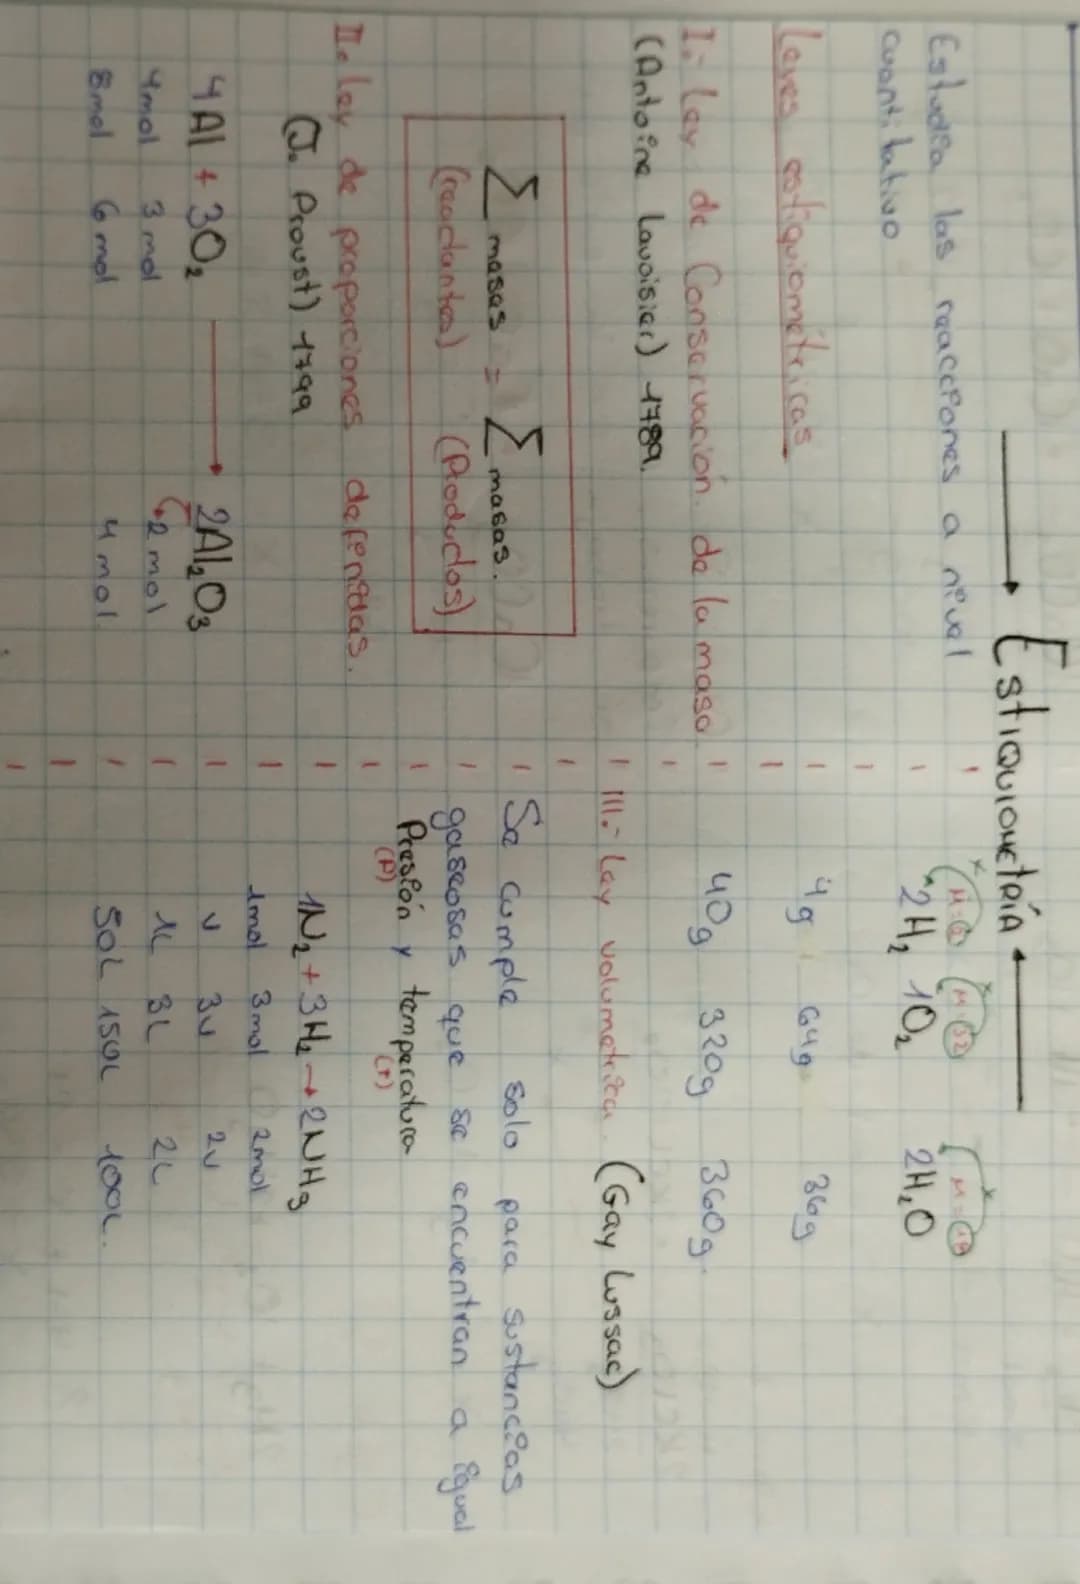 Estiquiometría
Estudia las reacciones a nivel
cuantitativo
Leyes estiquiométricas
I.- Ley de Conservación de la masa
(Antoine Lavoisier) 1789.
∑ masas = ∑ masas.
(reactantes) (Productos)
II. Ley de proporciones definidas.
(J. Proust) 1799
4Al + 3O₂ → 2Al₂O₃
4mol 3mol 2mol
8mol 6mol 4mol
M=2 M=32 M=18
2H₂ 1O₂ 2H₂O
4g 64g 36g
40g 320g 360g.
III.- Ley volumetrica. (Gay Lussac)
Se cumple solo para sustancias
gaseosas que se encuentran a igual
Presión y temperatura
(P) (T)
1N₂ + 3H₂ → 2NH₃
1mol 3mol 2mol
v 3v 2v
1L 3L 2L
50L 150L 100L.